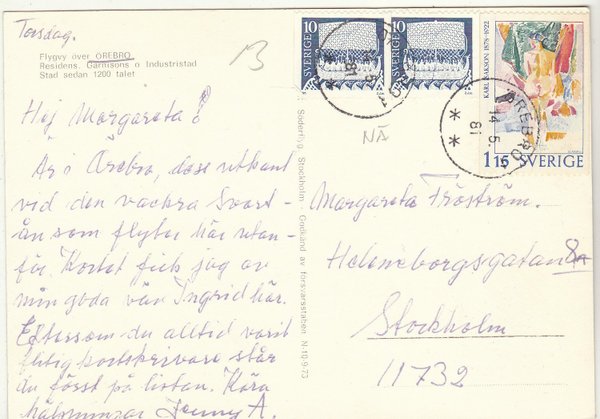 Torsdag.
Flygvy över ÖREBRO.
Residens. Garnisons o Industristad
Stad sedan 1200 talet
B
Hej Margareta!
Är i Örebro, dess utkant
vid den vackra Svart-
ån som flyter här utan-
för. Kortet fick jag av
min goda vän Ingrid här.
Eftersom du alltid varit
flitig kortskrivare står
du först på listan. Kära
hälsningar Jenny A.
Söderflyg, Stockholm - Godkänd av försvarsstaben N-10-9/73
10
SVERIGE
10
SVERIGE
KARL ISAKSON 1878-1922
1 15 SVERIGE
ÖREBRO
14.5.
81
NÄ
Margareta Fröström.
Heleneborgsgatan 8A
Stockholm
11732